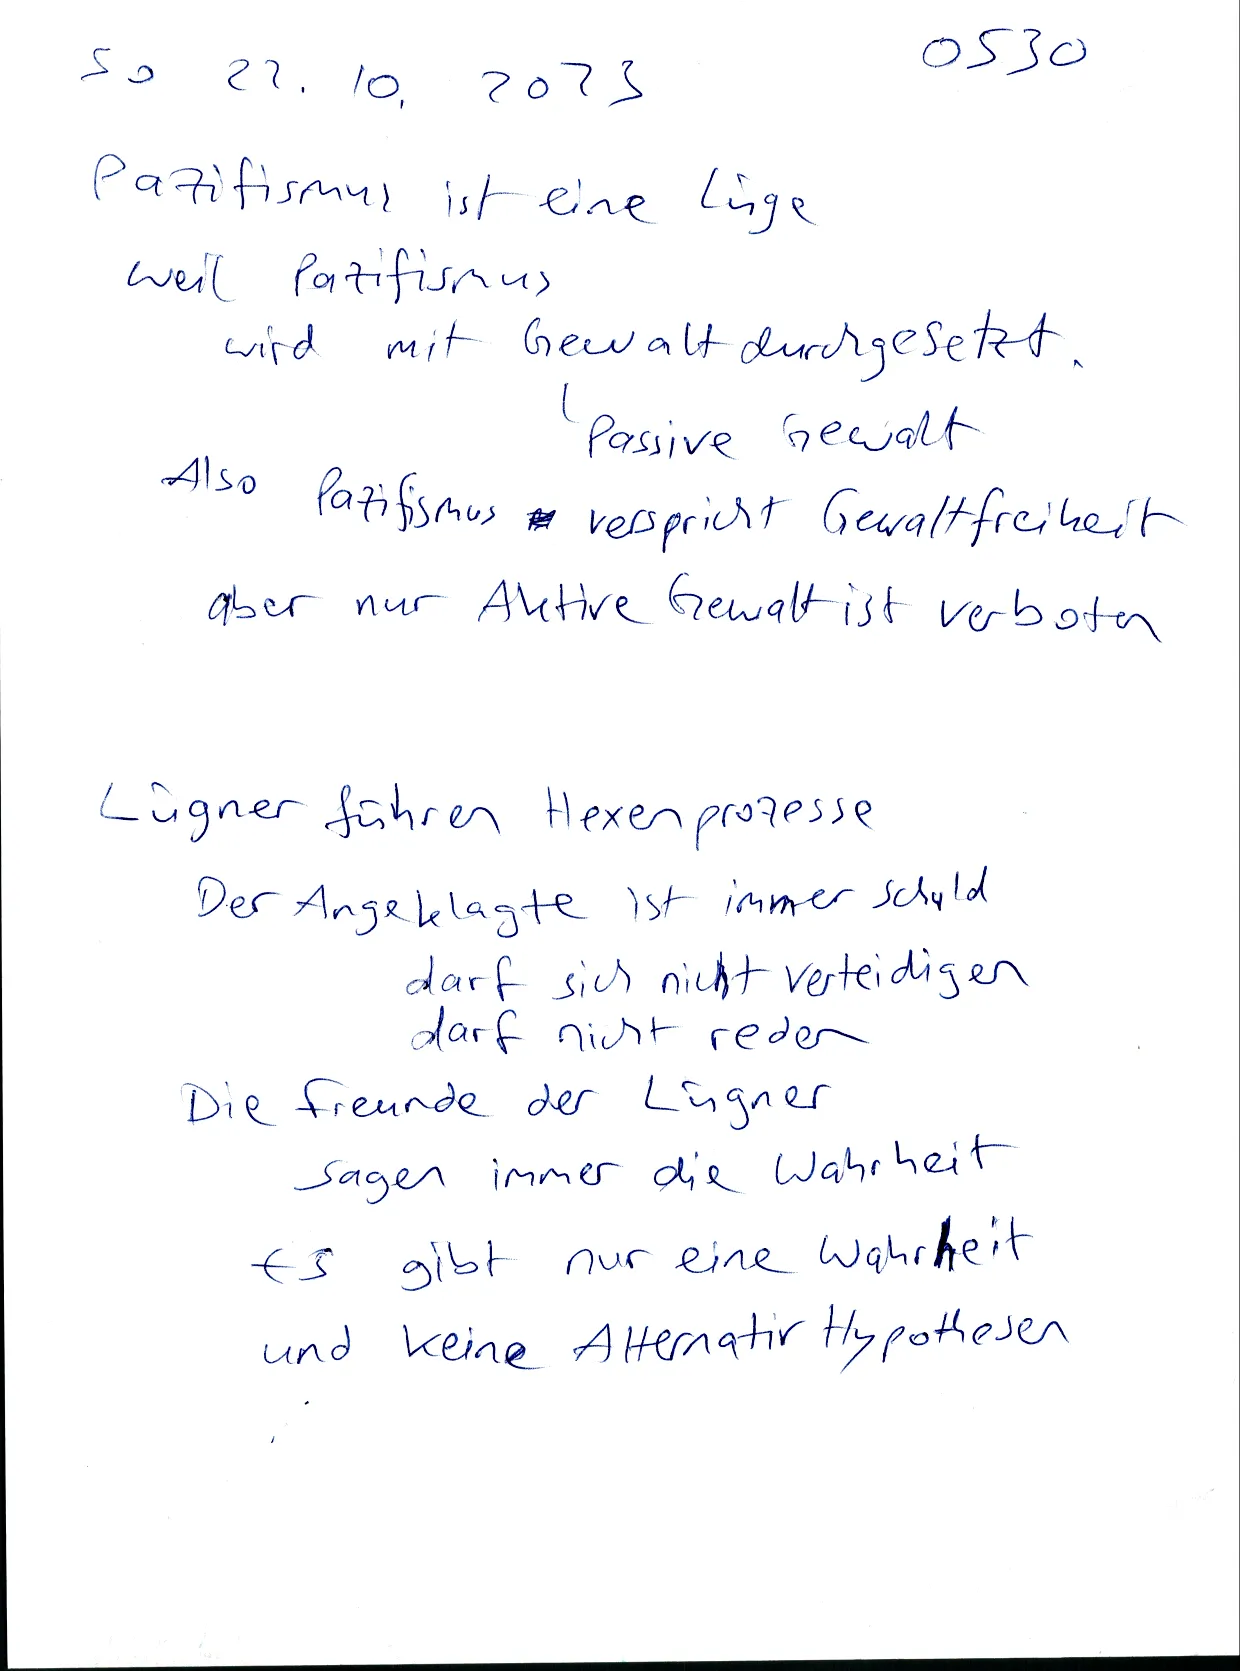 So 22. 10. 2023 0530
Pazifismus ist eine Lüge
weil Pazifismus
wird mit Gewalt durchgesetzt.
Passive Gewalt
Also Pazifismus verspricht Gewaltfreiheit
aber nur Aktive Gewalt ist verboten
Lügner führen Hexenprozesse
Der Angeklagte ist immer schuld
darf sich nicht verteidigen
darf nicht reden
Die Freunde der Lügner
sagen immer die Wahrheit
Es gibt nur eine Wahrheit
und keine Alternativ Hypothesen